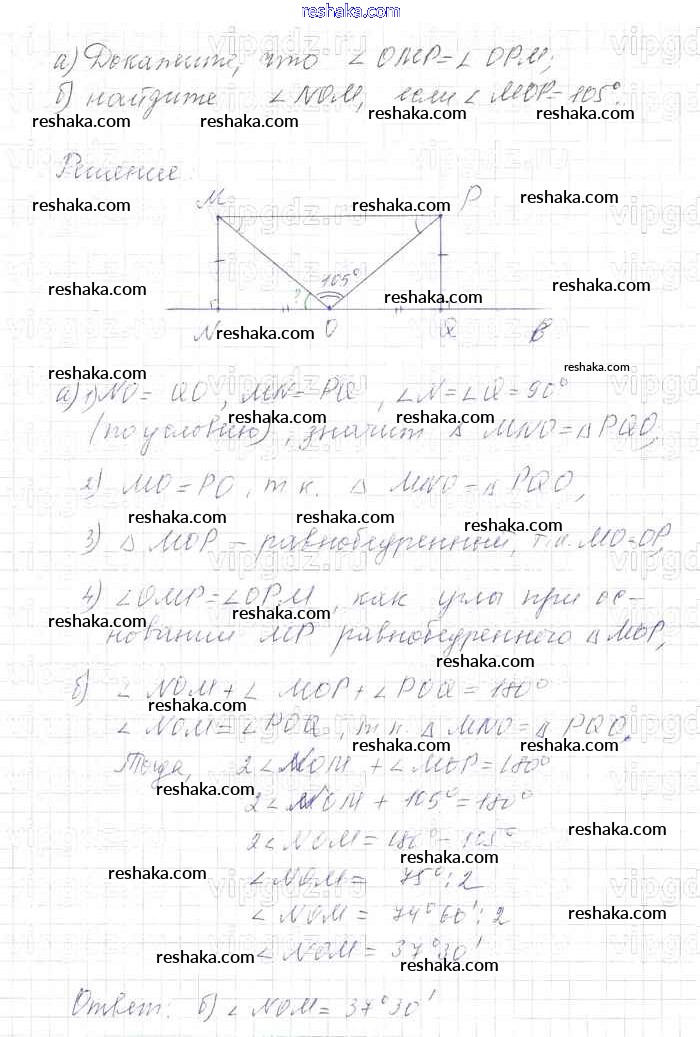 reshaka.com
а) Докажите, что ∠OMP=∠OPM;
б) найдите ∠NOM, если ∠MOP=105°.
Решение:
M P
105°
?
N O Q в
а) 1) NO = QO, MN = PQ, ∠N=∠Q=90°
(по условию), значит △ MNO=△PQO,
2) MO=PO, т.к. △ MNO=△PQO,
3) △ MOP – равнобедренный, т.к. MO=OP,
4) ∠OMP=∠OPM, как углы при ос-
новании MP равнобедренного △MOP,
б) ∠ NOM+∠ MOP+∠POQ=180°
∠ NOM=∠POQ, т.к. △ MNO=△ PQO.
Тогда, 2∠NOM +∠MOP=180°
2∠NOM + 105°=180°
2∠NOM=180°-105°
∠NOM = 75°:2
∠NOM = 74°60':2
∠NOM = 37°30'
Ответ: б) ∠NOM= 37°30'